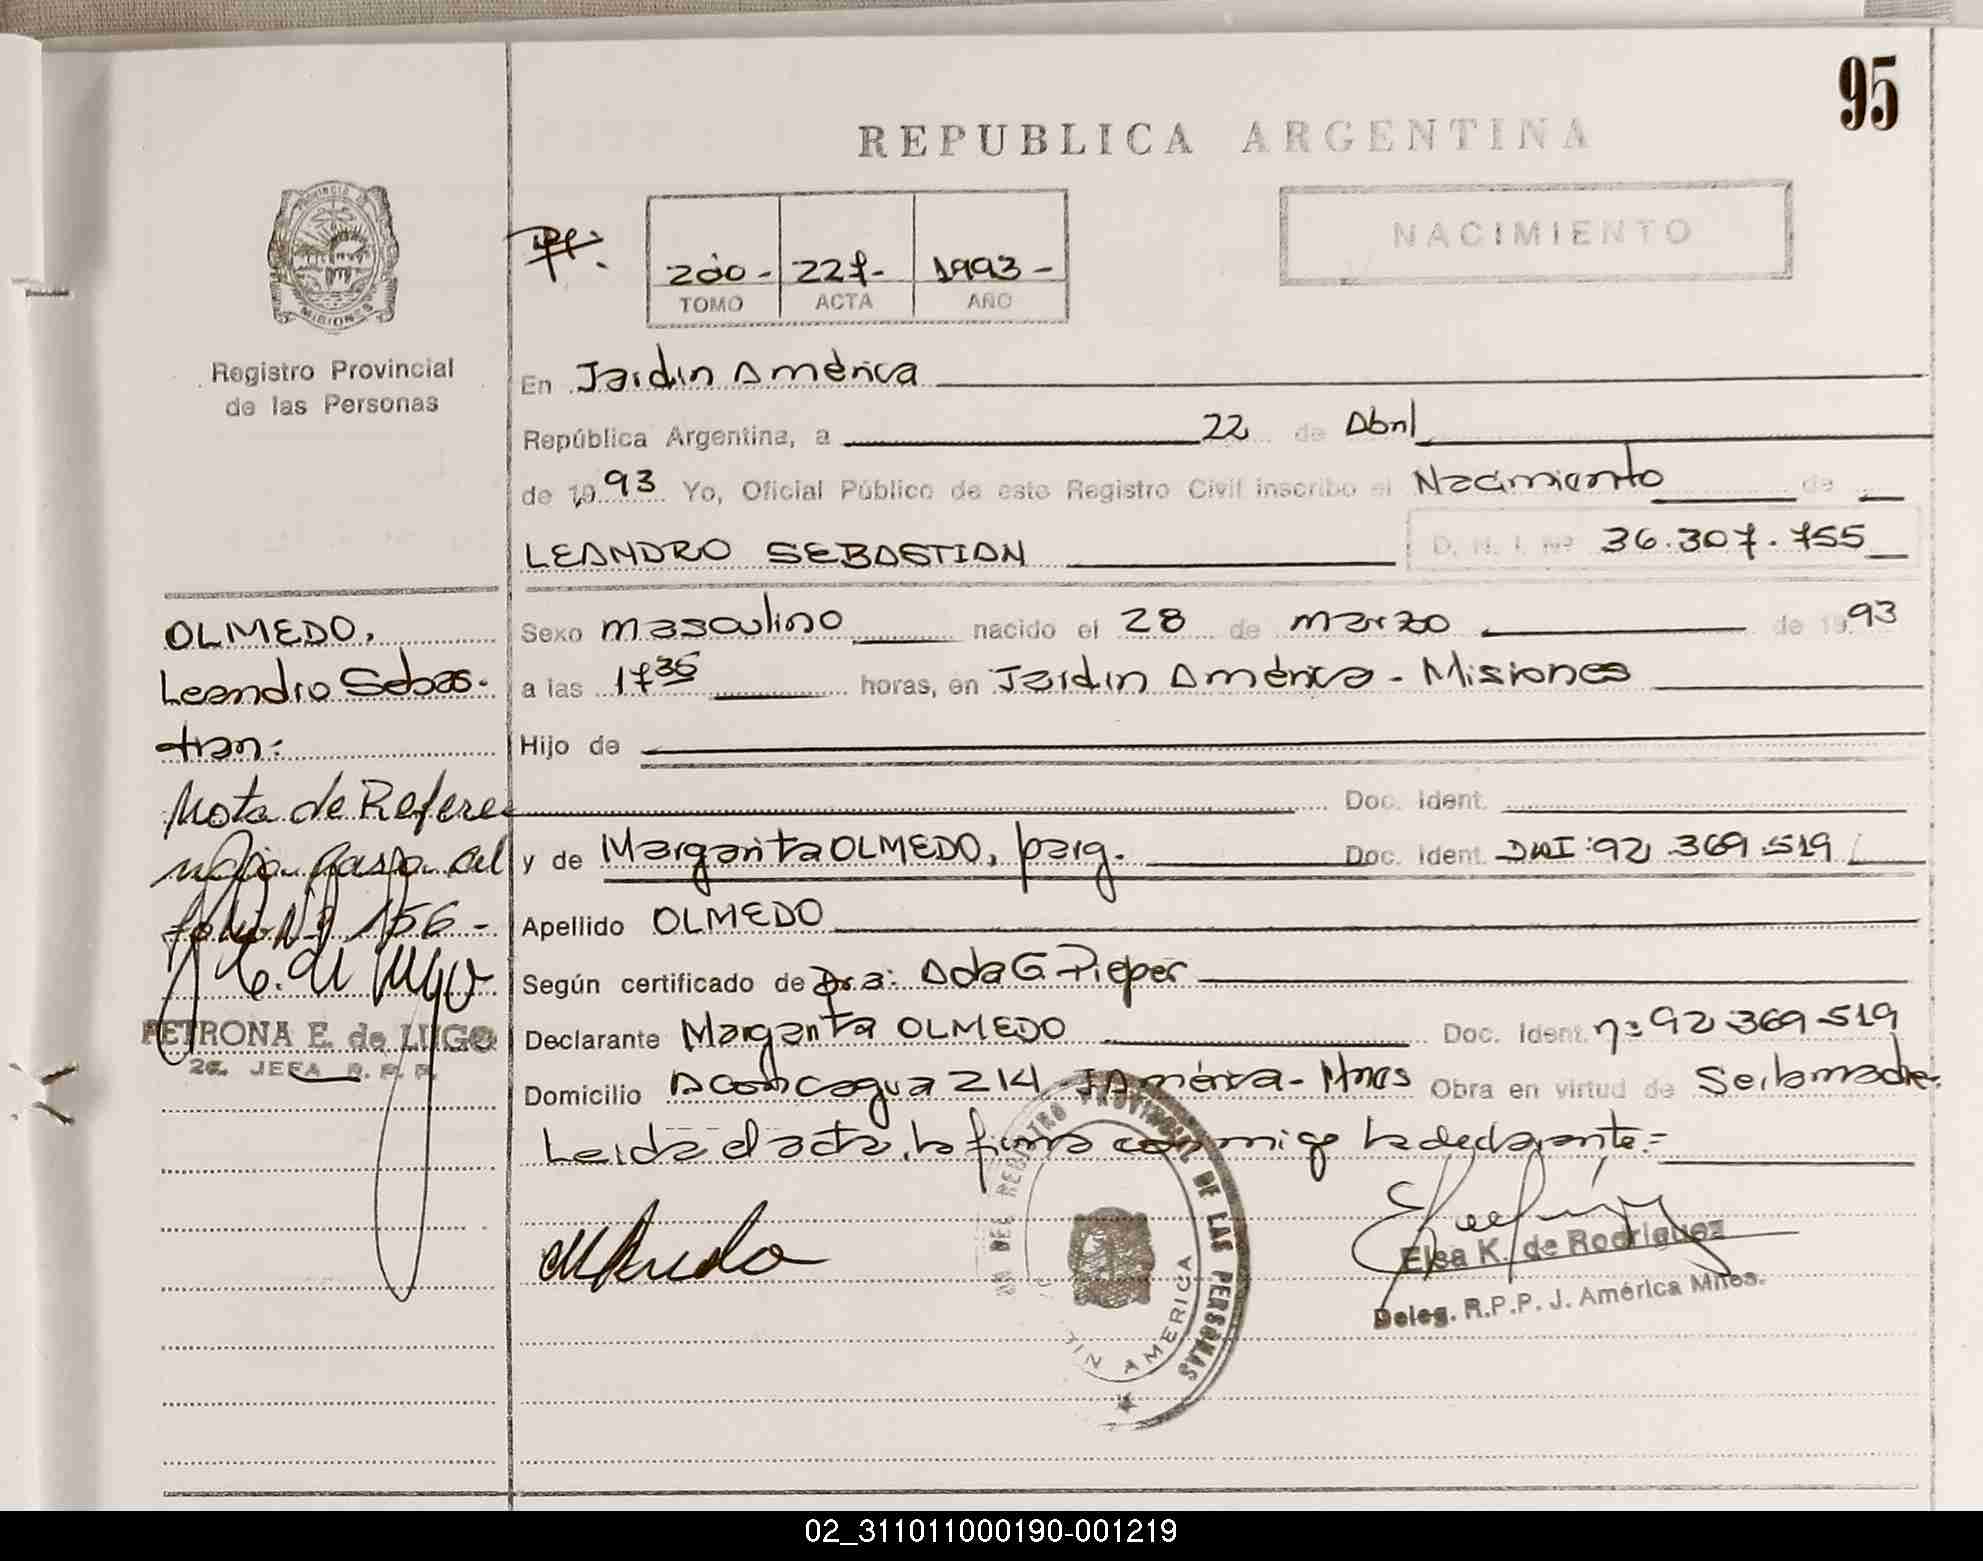 95
REPUBLICA ARGENTINA
NACIMIENTO
PROVINCIA DE
MISIONES
200- 227- 1993-
TOMO ACTA AÑO
Registro Provincial
de las Personas
En Jardín América
República Argentina, a 22 de Abril
de 1993 Yo, Oficial Público de este Registro Civil inscribo el Nacimiento de
LEANDRO SEBASTIAN D. N. I. Nº 36.307.755
OLMEDO,
Leandro Sebas-
tian:
Sexo masculino nacido el 28 de marzo de 1993
a las 17 35 horas, en Jardín América - Misiones
Hijo de
Doc. Ident.
y de Margarita OLMEDO, parg. Doc. Ident. DNI: 92.369.519
Apellido OLMEDO
Según certificado de Dra: Ada G. Pieper
Declarante Margarita OLMEDO Doc. Ident. nº 92.369.519
Domicilio Aconcagua 214 J América - Mnes Obra en virtud de Ser la madre.
Leida el acta, la firma conmigo la declarante.=
Nota de Referen
cia. Pasa al
folio Nº 156-
PETRONA E. de LUGO
2a. JEFA R. P. P.
DEL REGISTRO PROVINCIAL DE LAS PERSONAS
AMERICA
Elsa K. de Rodriguez
Deleg. R.P.P. J. América Mnes.
02_311011000190-001219